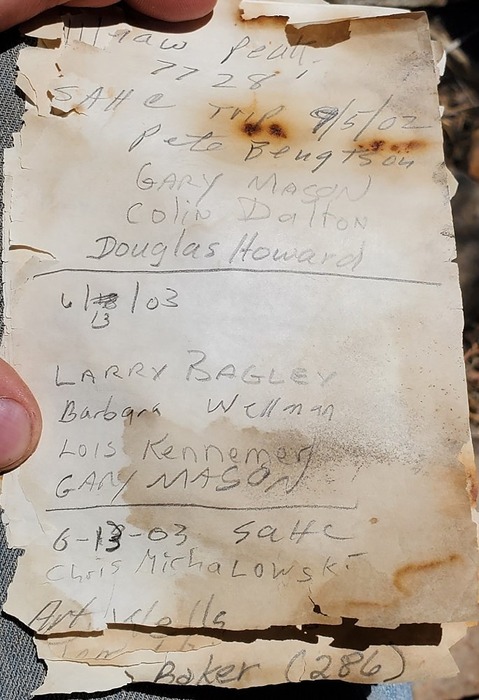 Peak
7728'
SAHC Trip 9/5/02
Pete Bengtson
GARY MASON
Colin Dalton
Douglas Howard
6/13/03
LARRY BAGLEY
Barbara Wellman
Lois Kennemer
GARY MASON
6-13-03 SAHC
Chris Michalowski
Art Wells
Baker (286)